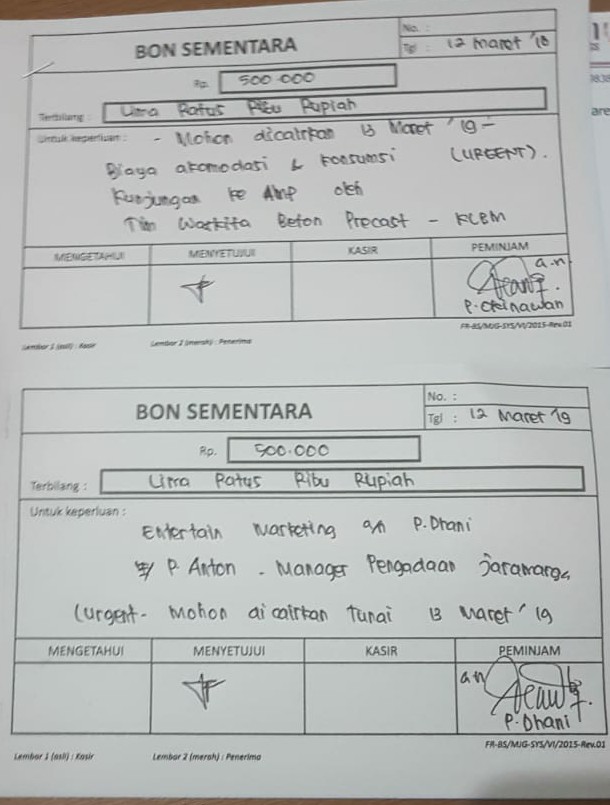 BON SEMENTARA
No. :
Tgl : 12 Maret '19
Rp. 500.000
Terbilang : Lima Ratus Ribu Rupiah
Untuk keperluan : - Mohon dicairkan 13 Maret '19 -
Biaya akomodasi & konsumsi (URGENT).
Kunjungan ke AMP oleh
Tim Waskita Beton Precast -
MENGETAHUI MENYETUJUI KASIR PEMINJAM
a.n
Lembar 1 (asli) : Kasir Lembar 2 (merah) : Penerima FR-BS/MJG-SYS/VI/2015-Rev.01
BON SEMENTARA
No. :
Tgl : 12 Maret 19
Rp. 500.000
Terbilang : Lima Ratus Ribu Rupiah
Untuk keperluan :
Entertain Marketing an P. Dhani
P. Anton - Manager Pengadaan Jaramarga
(urgent - Mohon dicairkan Tunai 13 Maret '19
MENGETAHUI MENYETUJUI KASIR PEMINJAM
an
P. Dhani
Lembar 1 (asli) : Kasir Lembar 2 (merah) : Penerima FR-BS/MJG-SYS/VI/2015-Rev.01